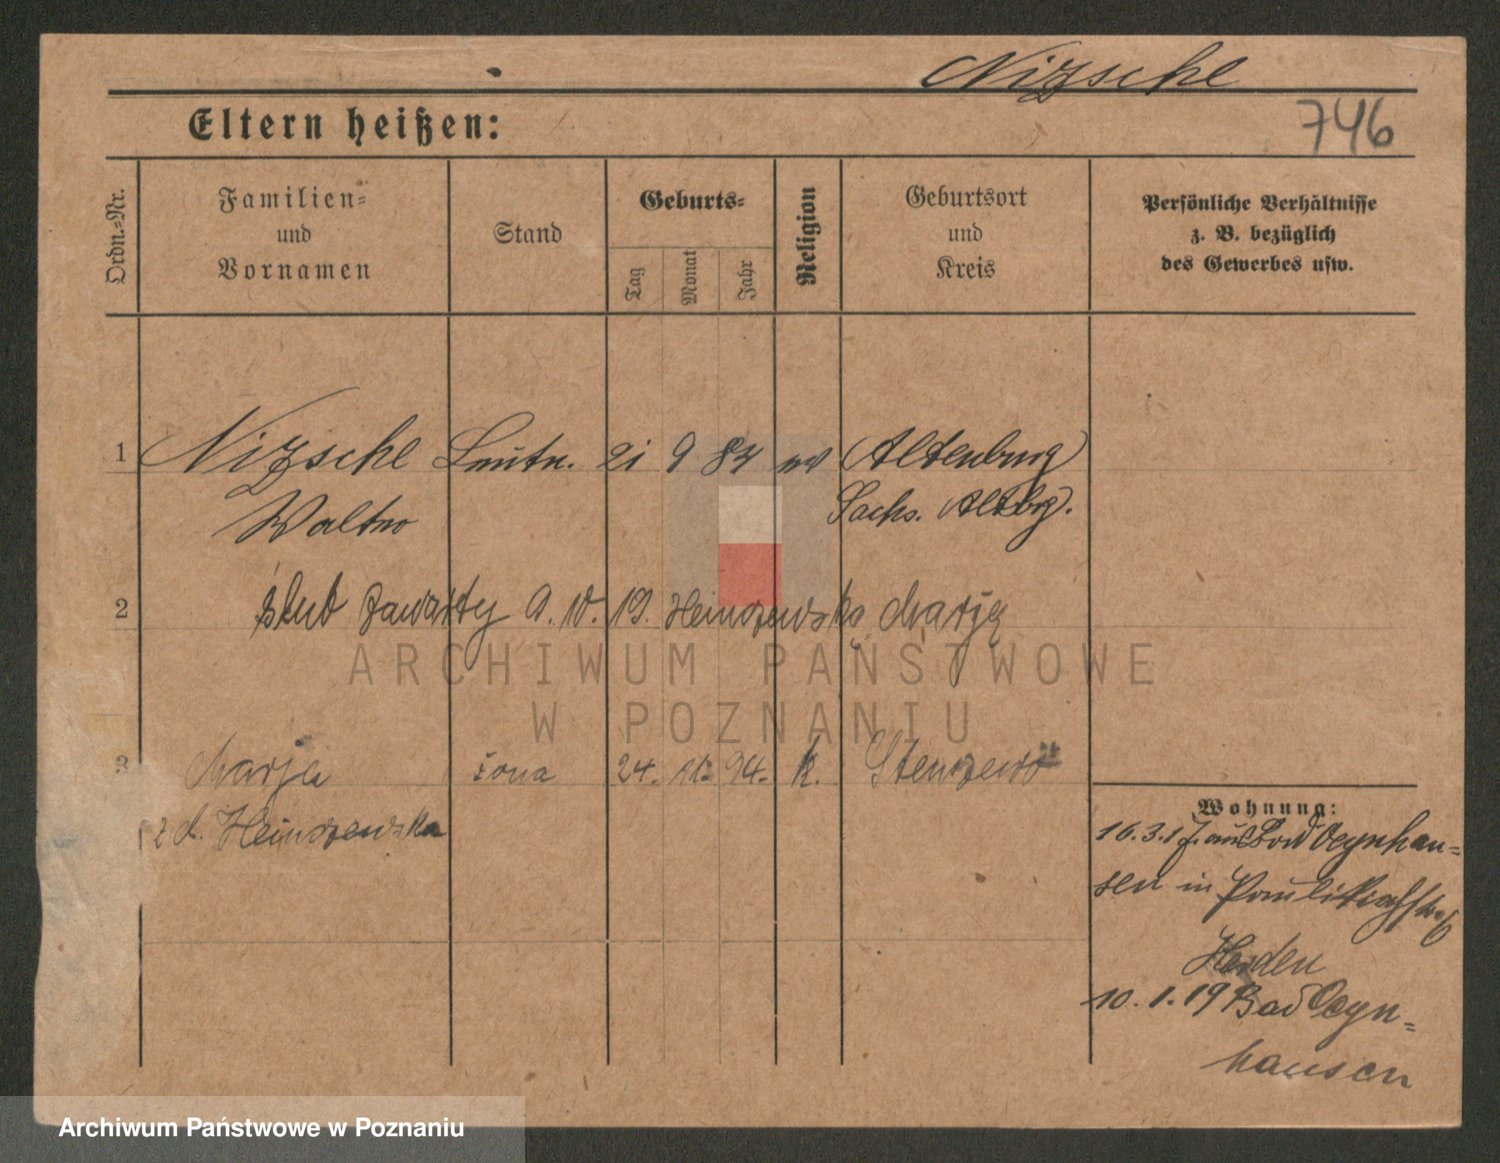 Nizsche
746
Eltern heißen:
Ordn.-Nr.
Familien-
und
Vornamen
Stand
Geburts-
Tag
Monat
Jahr
Religion
Geburtsort
und
Kreis
Persönliche Verhältnisse
z. B. bezüglich
des Gewerbes usw.
1 Nizsche Leutn. 21 9 87 ev (Altenburg)
Walter Sachs. Altbg).
2 ślub zawarty 9. 10. 19. Heinszewska Marją
3 Marja żona 24. 11. 94. k. Stenszewo
z d. Heinszewska
Wohnung:
16.3.17. aus Bad Oeynhau-
sen in Paulikirchstr 6
Heyden
10. 1. 19 Bad Oeyn-
hausen
ARCHIWUM PAŃSTWOWE
W POZNANIU
Archiwum Państwowe w Poznaniu